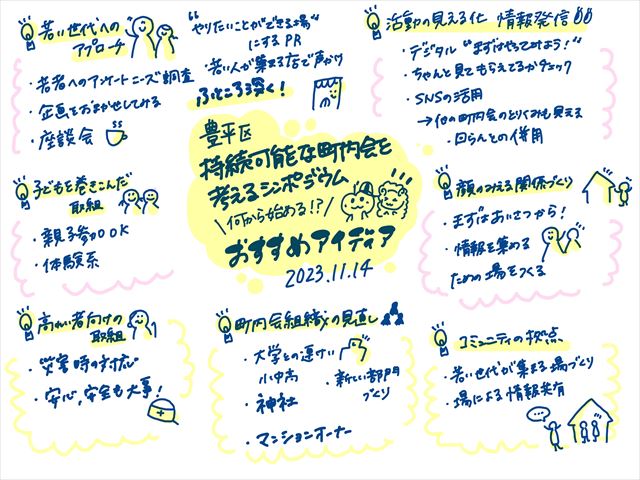 若い世代への
アプローチ
・若者へのアンケートニーズ調査
・企画をおまかせしてみる
・座談会
"やりたいことができる場"
にするPR
・若い人が集まる店で声かけ
ふところ深く！
活動の見える化 情報発信
・デジタル"まずはやってみよう！"
・ちゃんと見てもらえてるかチェック
・SNSの活用
→他の町内会のとりくみも見える
・回らんとの併用
豊平区
持続可能な町内会を
考えるシンポジウム
\何から始める!?/
おすすめアイディア
2023.11.14
子どもを巻きこんだ
取組
・親子参加OK
・体験系
顔のみえる関係づくり
・まずはあいさつから！
・情報を集める
ための場をつくる
高れい者向けの
取組
・災害時の対応
・安心、安全も大事！
町内会組織の見直し
・大学との連けい
小中高
・神社
・マンションオーナー
・新しい部門
づくり
コミュニティの拠点
・若い世代が集まる場づくり
・場による情報共有